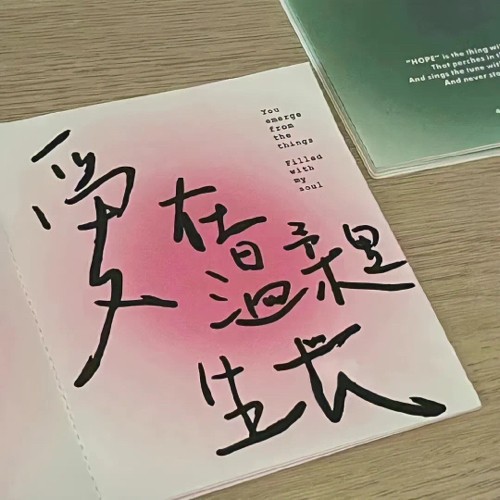 You
emerge
from
the
things
Filled
with
my
soul
爱
在温柔里
生长
"HOPE" is the thing wi
That perches in t
And sings the tune wit
And never s